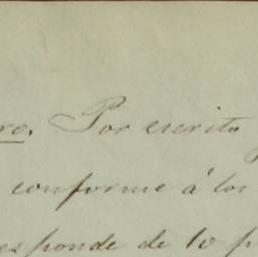 ro. Por escrito
conforme á los
esponde de lo p